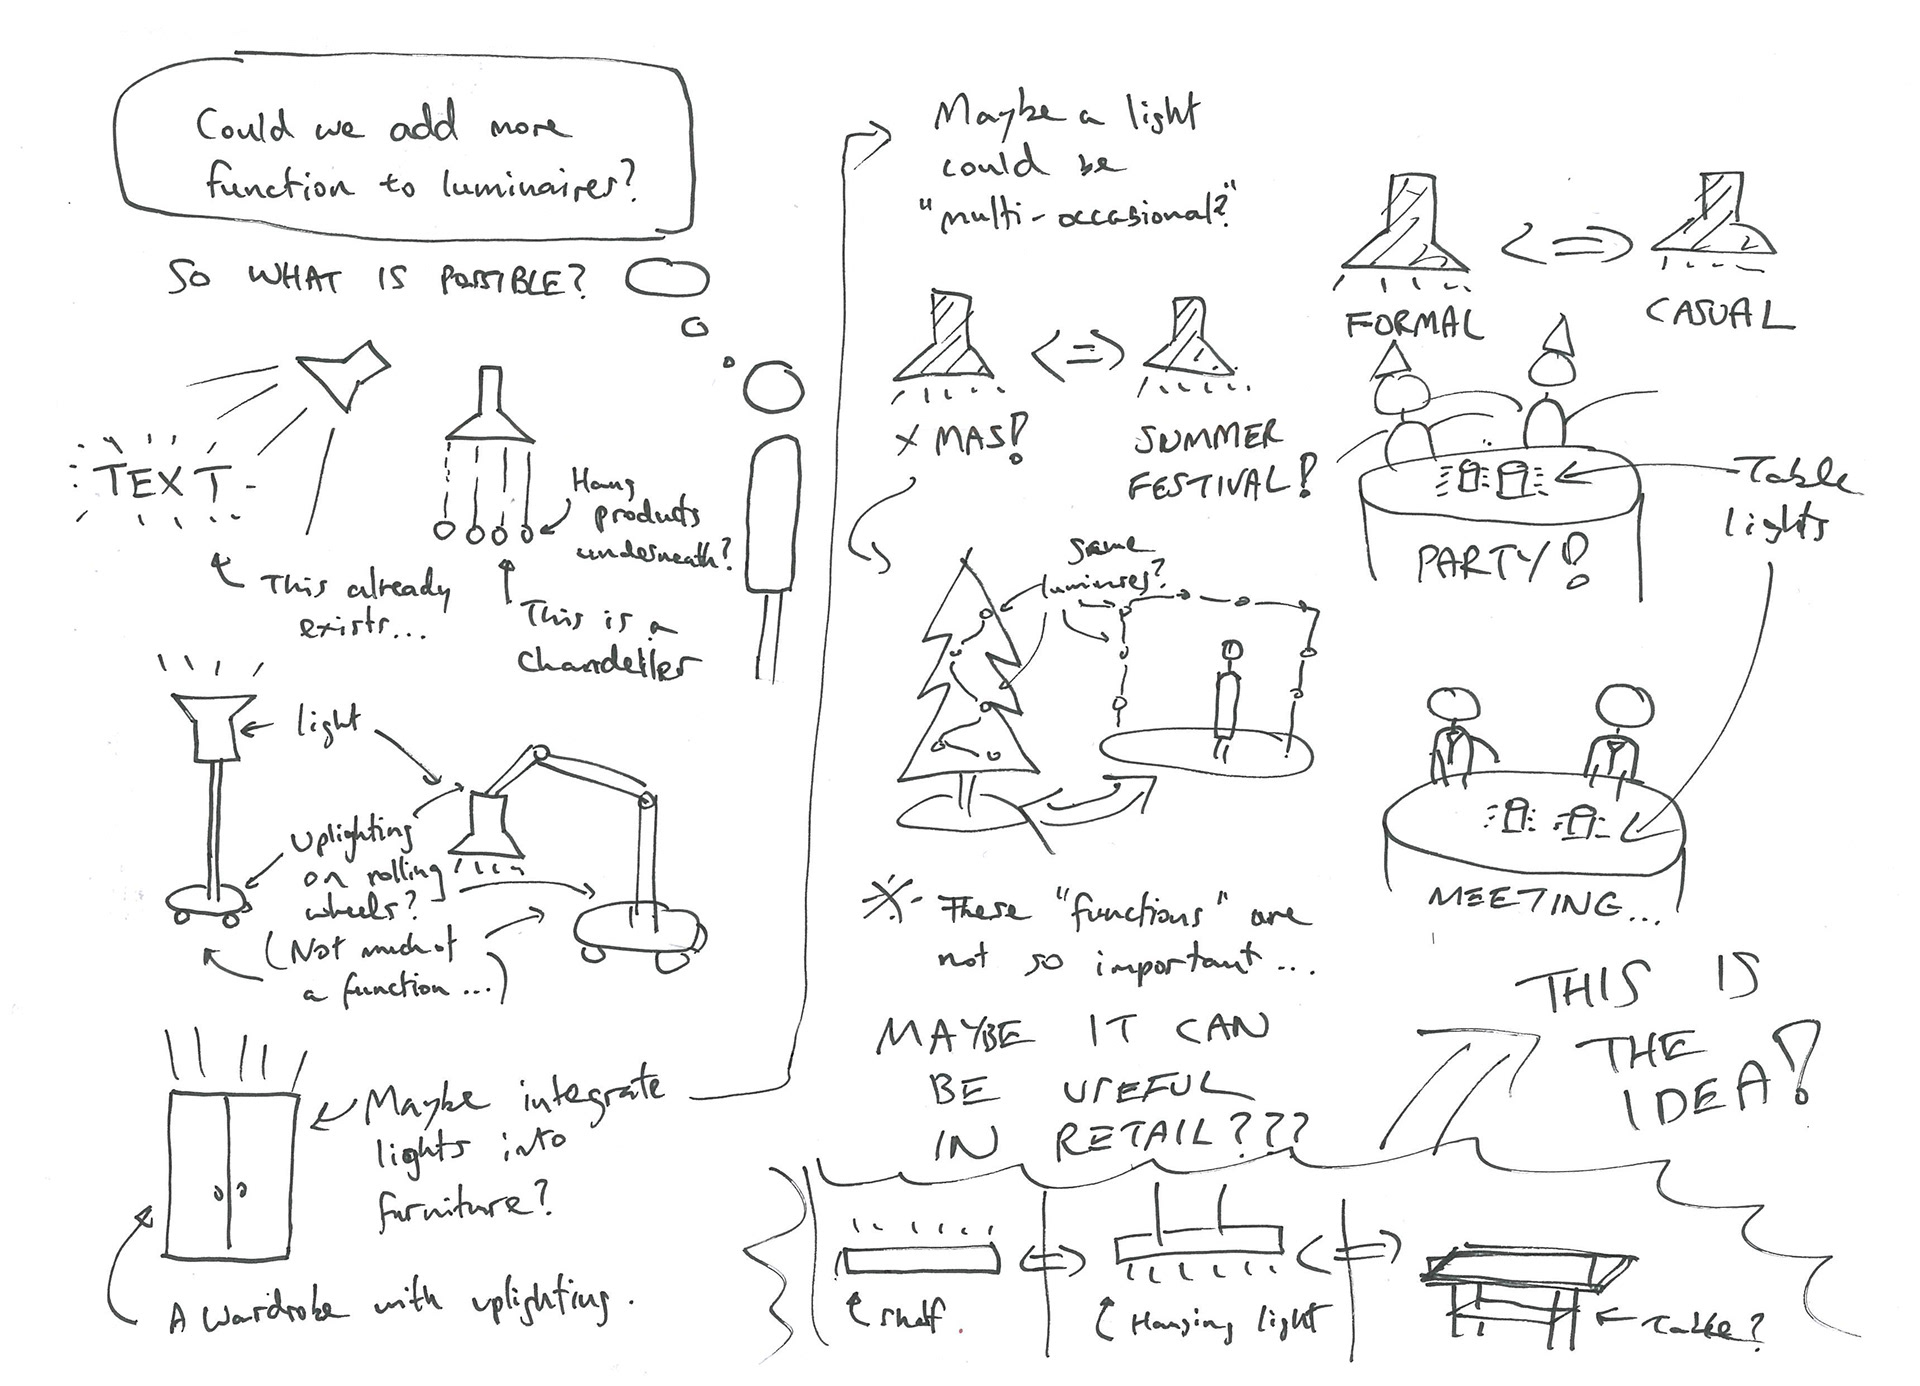 Could we add more
function to luminaires?
SO WHAT IS POSSIBLE?
TEXT
This already
exists...
Hang
products
underneath?
This is a
chandelier
light
Uplighting
on rolling
wheels?
(Not much of
a function...)
Maybe integrate
lights into
furniture?
A wardrobe with uplighting.
Maybe a light
could be
"multi-occasional?"
X MAS!
SUMMER
FESTIVAL!
FORMAL
CASUAL
same
PARTY!
Table
lights
MEETING...
※ These "functions" are
not so important...
MAYBE IT CAN
BE USEFUL
IN RETAIL???
THIS IS
THE
IDEA!
shelf.
Hanging light
Table?